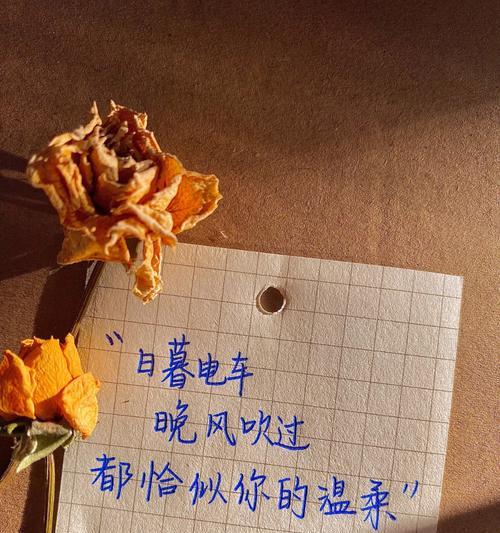 "日暮电车
晚风吹过
都恰似你的温柔"